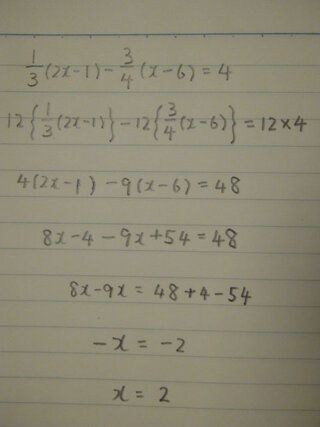 1/3(2x-1)-3/4(x-6)=4
12{1/3(2x-1)}-12{3/4(x-6)}=12×4
4(2x-1)-9(x-6)=48
8x-4-9x+54=48
8x-9x=48+4-54
-x=-2
x=2